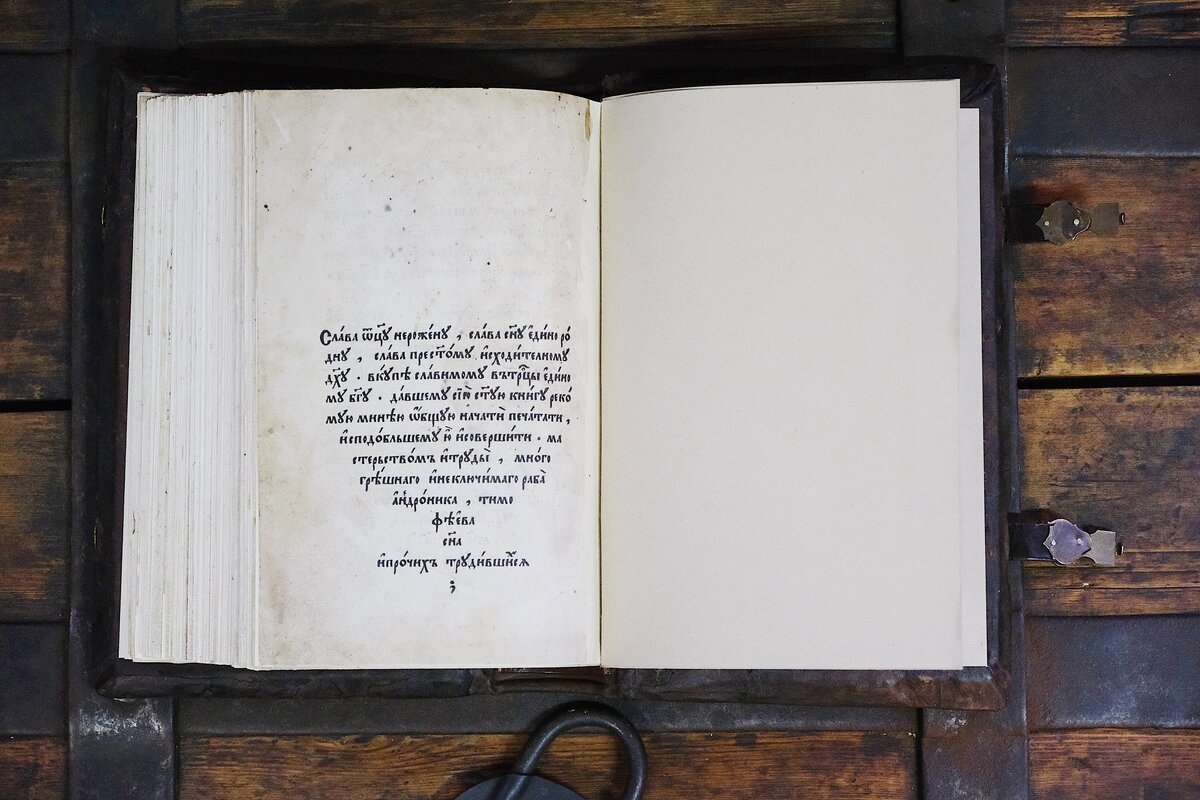 Сла́ва ѿц҃у нерожéну , сла́ва сн҃у є҆ди́норо́
дну , сла́ва прест҃о́му и҆сходи́телному
дх҃у . вкꙋ́пѣ сла́вимому вътрⷪ҇цы є҆ди́но
му бг҃у . да́вшему сїю̀ ст҃ую кни́гу реко́
мую минѣ́ю ѻ҆́бщую нача́ти печа́тати ,
и҆сподо́бльшему ю҆̀ и҆соверши́ти . ма
стерьство́мъ и҆труды̀ , мно́го
грѣ́шнаго и҆неключи́маго раба̀
а҆ндро́ника , тимо
ѳѣ́ева
сн҃а
и҆про́чихъ труди́вшихсѧ